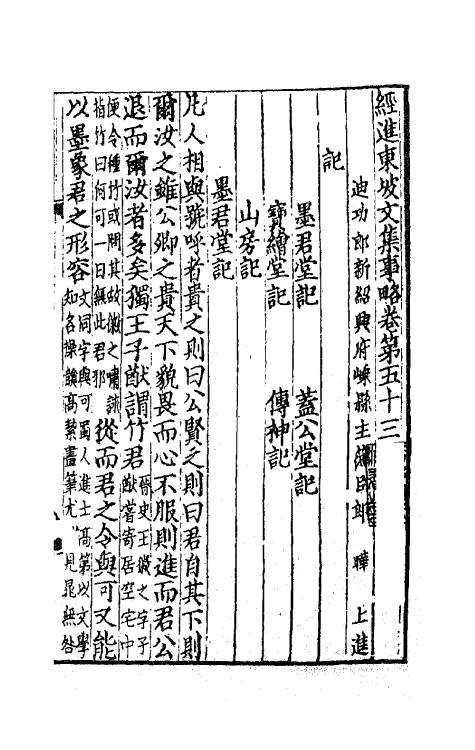 經進東坡文集事略卷第五十三
迪功郎新紹興府嵊縣主簿臣郎 曄 上進
記
墨君堂記 蓋公堂記
寶繪堂記 傳神記
山房記
墨君堂記
凡人相與號呼者貴之則曰公賢之則曰君自其下則
爾汝之雖公卿之貴天下貌畏而心不服則進而君公
退而爾汝者多矣獨王子猷謂竹君晉史王徽之字子猷嘗寄居空宅中
便令種竹或問其故徽之嘯詠指竹曰何可一日無此君邪從而君之令與可又能
以墨象君之形容文同字與可蜀人進士高第以文學知名操韻高絜畫筆尤 見晁無咎